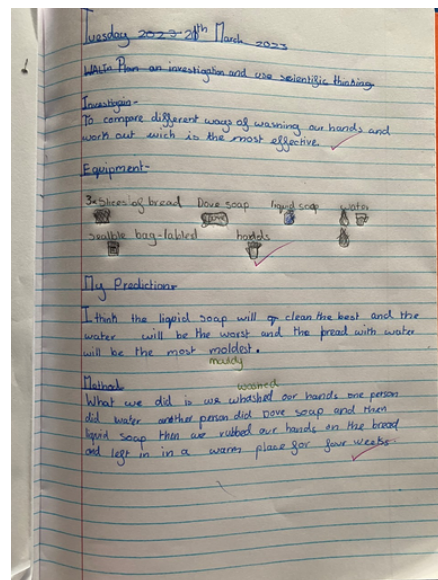 Tuesday 2023 28th March 2023
WALT: Plan an investigation and use scientific thinking.
Investigation-
To compare different ways of washing our hands and
work out wich is the most effective.
Equipment-
3x Slices of bread Dove soap liquid soap water
sealble bag-labled hands
My Prediction-
I think the liquid soap will clean the best and the
water will be the worst and the bread with water
will be the most moldest.
mouldy
Method
washed
What we did is we whashed our hands one person
did water another person did Dove soap and then
liquid soap then we rubbed our hands on the bread
and left in in a warm place for four weeks